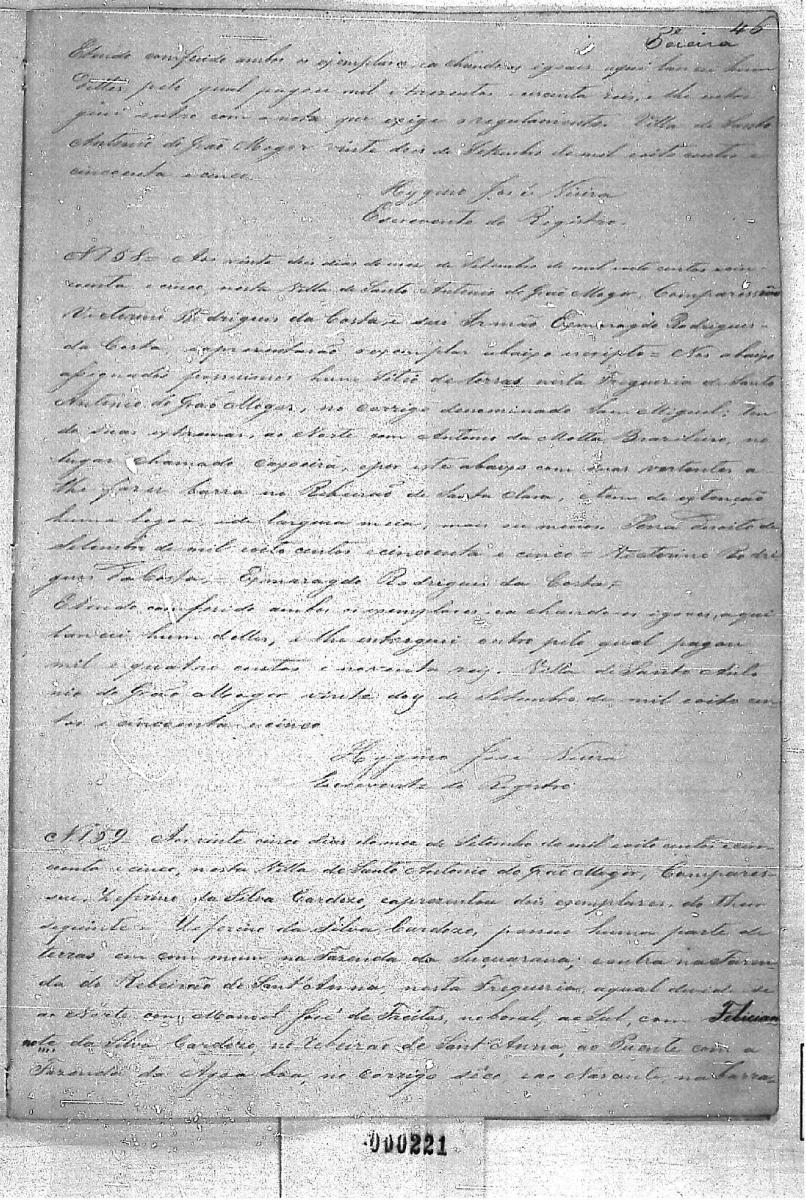 46
Pereira
Etendo comferido ambos os ejemplares, ea chando os igoaes aqui lancei hum
Delles pelo qual pagou mil e trezentos e cincoenta reis, e lhe entre
guei outro com a nota que exige o regulamento. Villa de Santo
Antonio do Grão Mogor vinte dois de Setembro de mil e oito centos e
cincoenta e cinco.
Hygino José Vieira
Escrevente do Registro.
N 158 = Aos vinte dois dias do mez de Setembro de mil e oito centos e cin-
coenta e cinco, nesta Villa de Santo Antonio do Grão Mogor, Comparesserão
Victorino Rodrigues da Costa, e seu Irmão Esmaragdo Rodrigues
da Costa, e aprezentarão o exemplar abaixo escripto = Nos abaixo
assignados possuimos hum Sitio de terras nesta Freguezia de Santo
Antonio do Grão Mogor, no corrigo denominado Sam Miguel; ten
do suas extremas, ao Norte com Antonio da Motta Brazileiro, no
lugar chamado Capoeira, e por este abaixo com suas vertentes a
the fazer barra no Ribeirão de Santa Clara, e tem de extenção
huma legoa, e de largura meia, mais ou menos. dezoito de
Setembro de mil e oito centos e cincoenta e cinco = Victorino Rodri
gues Da Costa, = Esmaragdo Rodrigues da Costa =
Etendo comferido ambos os exemplares, ea chando-os igoaes, aqui
lancei hum delles, e lhe entreguei outro pelo qual pagou
mil e quatro centos e noventa reis. Villa de Santo Anto
nio do Grão Mogor vinte dois de Setembro de mil e oito cen
tos e cincoenta e cinco
Hygino José Vieira
Escrevente do Registro
N 159 Aos vinte cinco dias do mez de Setembro de mil e oito centos e cin
coenta e cinco, nesta Villa de Santo Antonio do Grão Mogor, Compares-
seu, Zeferino da Silva Cardozo, e aprezentou dois exemplares, do theor
seguinte = Zeferino da Silva Cardozo, possue huma parte de
terras em com mum na Fazenda da Suçuarana; e outra na Fazen
da do Ribeirão de Sant'Anna, nesta Freguezia, a qual devide-se
ao Norte com Manoel José de Freitas, ao Sul, com Felician
no da Silva Cardozo, no Ribeirão de Sant'Anna, ao Poente com a
Fazenda da Agoa boa, no Corrigo sêco, e ao Nascente, na Barra
000221